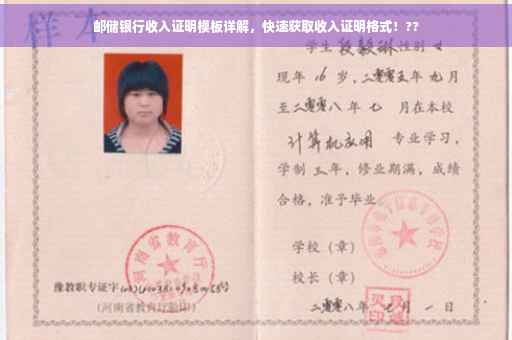 邮储银行收入证明模板详解，快速获取收入证明格式！??
样本
学生段毅琳性别女
现年16岁，二零零五年九月
至二零零八年七月在本校
计算机应用 专业学习，
学制三年，修业期满，成绩
合格，准予毕业。
学校（章）
校长（章）
二零零八年七月一日
河南省教育厅
豫教职专证字
（河南省教育厅验印）